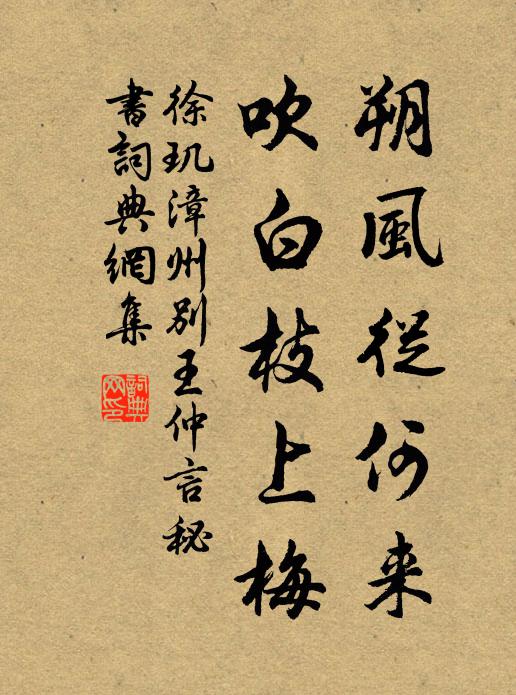 朔風從何来
吹白枝上梅
徐玑漳州别王仲言秘
書詞典網集
詞典网印